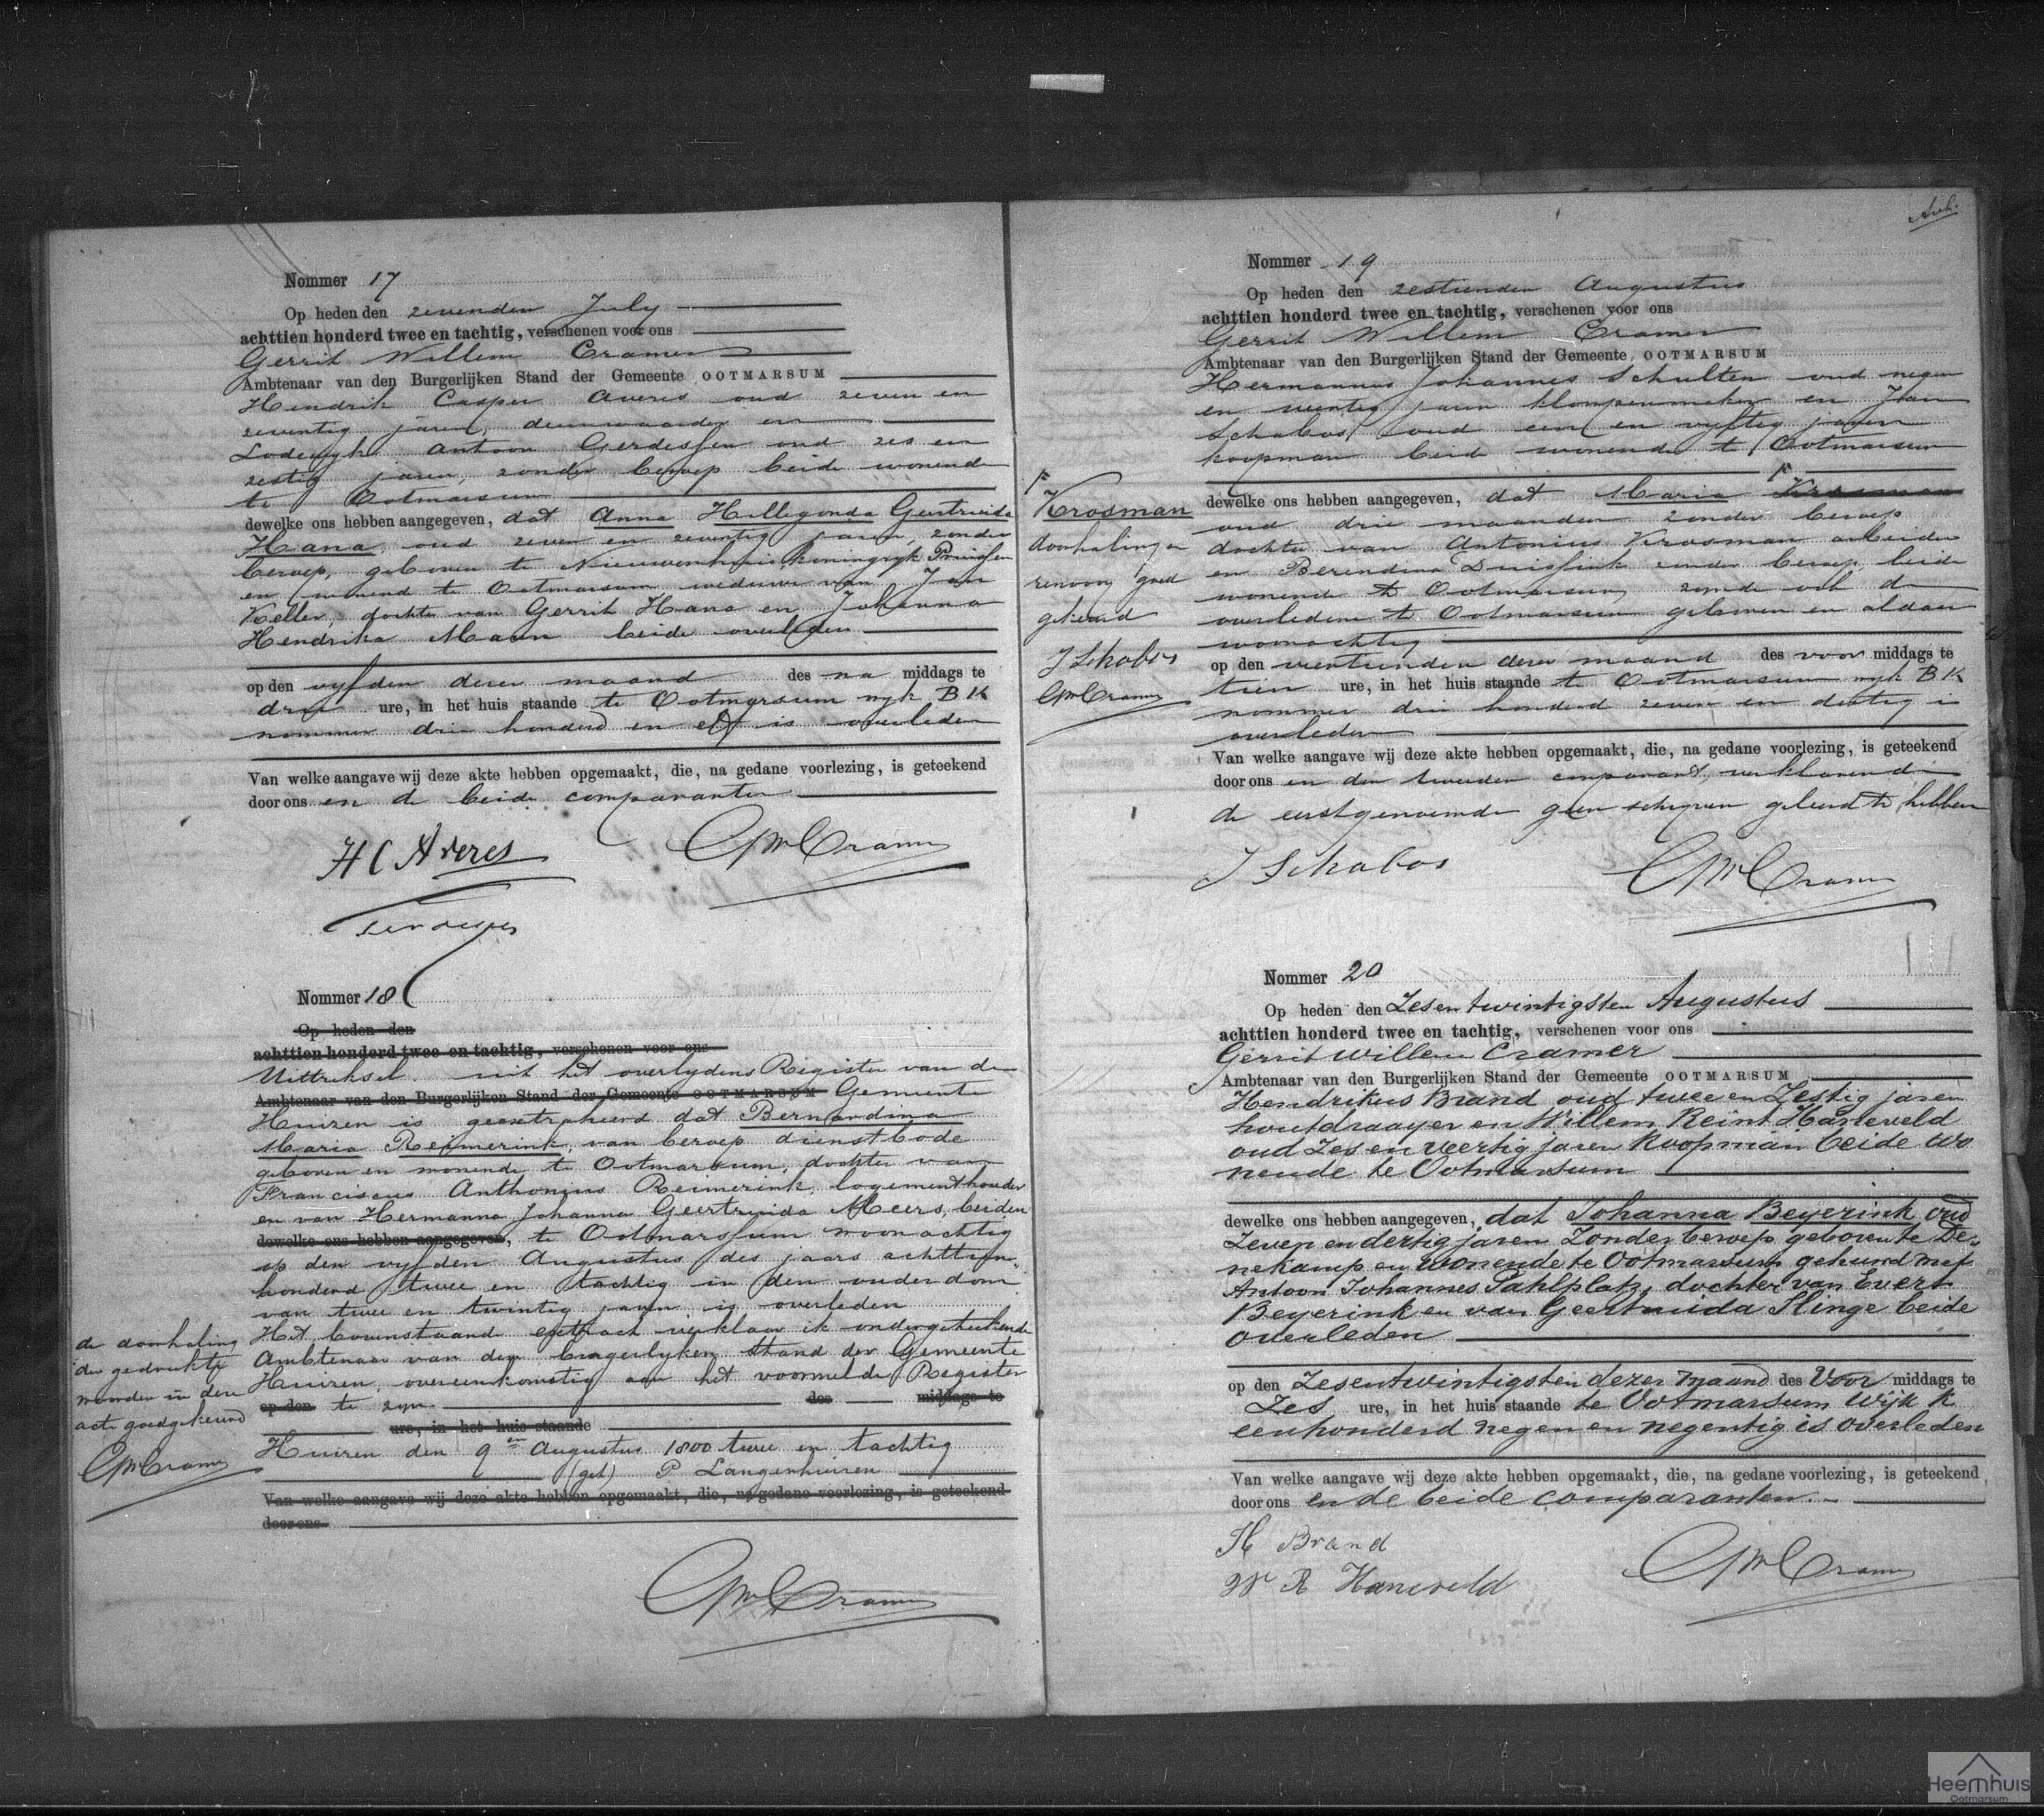 Nommer 17
Op heden den zevenden July
achttien honderd twee en tachtig, verschenen voor ons
Gerrit Willem Cramer
Ambtenaar van den Burgerlijken Stand der Gemeente OOTMARSUM
Hendrik Casper Averes oud zeven en
zeventig jaren, deurwaarder en
Lodewyk Antoon Gerdessen oud zes en
zestig jaren, zonder beroep beide wonende
te Ootmarsum
dewelke ons hebben aangegeven, dat Anna Hillegonda Geertruida
Hana, oud zeven en zeventig jaren, zonder
beroep, geboren te Nieuwenhuis, koningryk Pruissen
en wonend te Ootmarsum weduwe van Jan
Keller, dochter van Gerrit Hana en Johanna
Hendrika Maan beide overleden
op den vyfden dezer maand des na middags te
drie ure, in het huis staande te Ootmarsum wyk B K
nommer drie honderd en elf is overleden
Van welke aangave wij deze akte hebben opgemaakt, die, na gedane voorlezing, is geteekend
door ons en de beide comparanten
H C Averes GWCramer
Nommer 18
Op heden den
achttien honderd twee en tachtig, verschenen voor ons
Uittreksel uit het overlydens Register van de
Ambtenaar van den Burgerlijken Stand der Gemeente OOTMARSUM Gemeente
Huizen is geextraheerd dat Bernardina
Maria Reimerink, van beroep dienstbode
geboren en wonende te Ootmarsum, dochter van
Franciscus Anthonius Reimerink, logementhouder
en van Hermanna Johanna Geertruida Meers, beiden
dewelke ons hebben aangegeven, te Ootmarssum woonachtig
op den vyfden Augustus des jaars achttien
honderd twee en tachtig in den ouderdom
van twee en twintig jaren is overleden
Het bovenstaande extract verklaar ik ondergeteekende
Ambtenaar van den burgerlyken Stand der Gemeente
Huizen, overeenkomstig aan het voormelde Register
op den te zyn des middags te
ure, in het huis staande
Huizen den 9en Augustus 1800 twee en tachtig
(get) P Langenhuizen
Van welke aangave wij deze akte hebben opgemaakt, die, na gedane voorlezing, is geteekend
door ons
de doorhaling
der gedrukte
woorden in deze
acte goedgekeurd
GWCramer
GWCramer
Nommer 19
Op heden den zestienden Augustus
achttien honderd twee en tachtig, verschenen voor ons
Gerrit Willem Cramer
Ambtenaar van den Burgerlijken Stand der Gemeente OOTMARSUM
Hermannus Johannes Schulten oud negen
en veertig jaren klompenmaker en Jan
Schabos oud een en vyftig jaren
koopman beide wonende te Ootmarsum
dewelke ons hebben aangegeven, dat Maria Krosman
oud drie maanden zonder beroep
dochter van Antonius Krosman arbeider
en Berendina Duissink zonder beroep, beide
wonende te Ootmarsum zynde ook de
overledene te Ootmarsum geboren en aldaar
woonachtig
op den veertienden dezer maand des voor middags te
tien ure, in het huis staande te Ootmarsum wyk B K
nommer drie honderd zeven en dertig is
overleden
Van welke aangave wij deze akte hebben opgemaakt, die, na gedane voorlezing, is geteekend
door ons en den tweeden comparant, verklarende
de eerstgenoemde geen schryven geleerd te hebben
J Schabos GWCramer
Krosman
doorhaling en
renvooy goed
gekeurd
J Schabos
GWCramer
Nommer 20
Op heden den Zesentwintigsten Augustus
achttien honderd twee en tachtig, verschenen voor ons
Gerrit Willem Cramer
Ambtenaar van den Burgerlijken Stand der Gemeente OOTMARSUM
Hendrikus Brand oud twee en Zestig jaren
houtdraayer en Willem Reint Haneveld
oud Zes en veertig jaren Koopman beide wo
nende te Ootmarsum
dewelke ons hebben aangegeven, dat Johanna Beyerink oud
Zeven en dertig jaren Zonder beroep geboren te De-
nekamp en wonende te Ootmarsum gehuwd met
Antoon Johannes Sahlplatz, dochter van Evert
Beyerink en van Geertruida Slinge beide
overleden
op den Zesentwintigsten dezer maand des Voor middags te
Zes ure, in het huis staande te Ootmarsum Wijk K
eenhonderd negen en negentig is overleden
Van welke aangave wij deze akte hebben opgemaakt, die, na gedane voorlezing, is geteekend
door ons en de beide comparanten.
H Brand
W R Haneveld GWCramer
Heemhuis
Ootmarsum